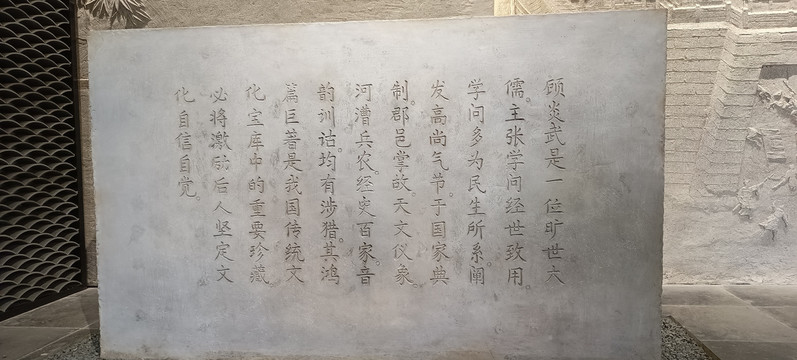 顾炎武是一位旷世大
儒。主张学问经世致用。
学问多为民生所系。阐
发高尚气节。于国家典
制。郡邑掌故。天文仪象。
河漕兵农。经史百家。音
韵训诂。均有涉猎。其鸿
篇巨著是我国传统文
化宝库中的重要珍藏
必将激励后人坚定文
化自信自觉。